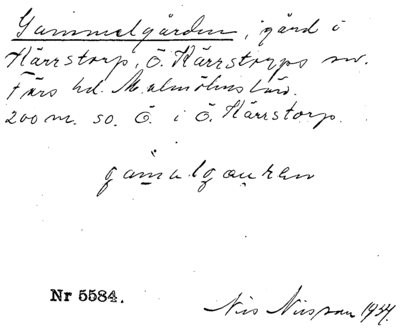 Gammelgården, gård i
Kärrstorp, Ö. Kärrstorps sn.
Färs hd. Malmöhus län.
200 m. so. Ö. i Ö. Kärrstorp.
Nr 5584.
Nils Nilsson 1934.